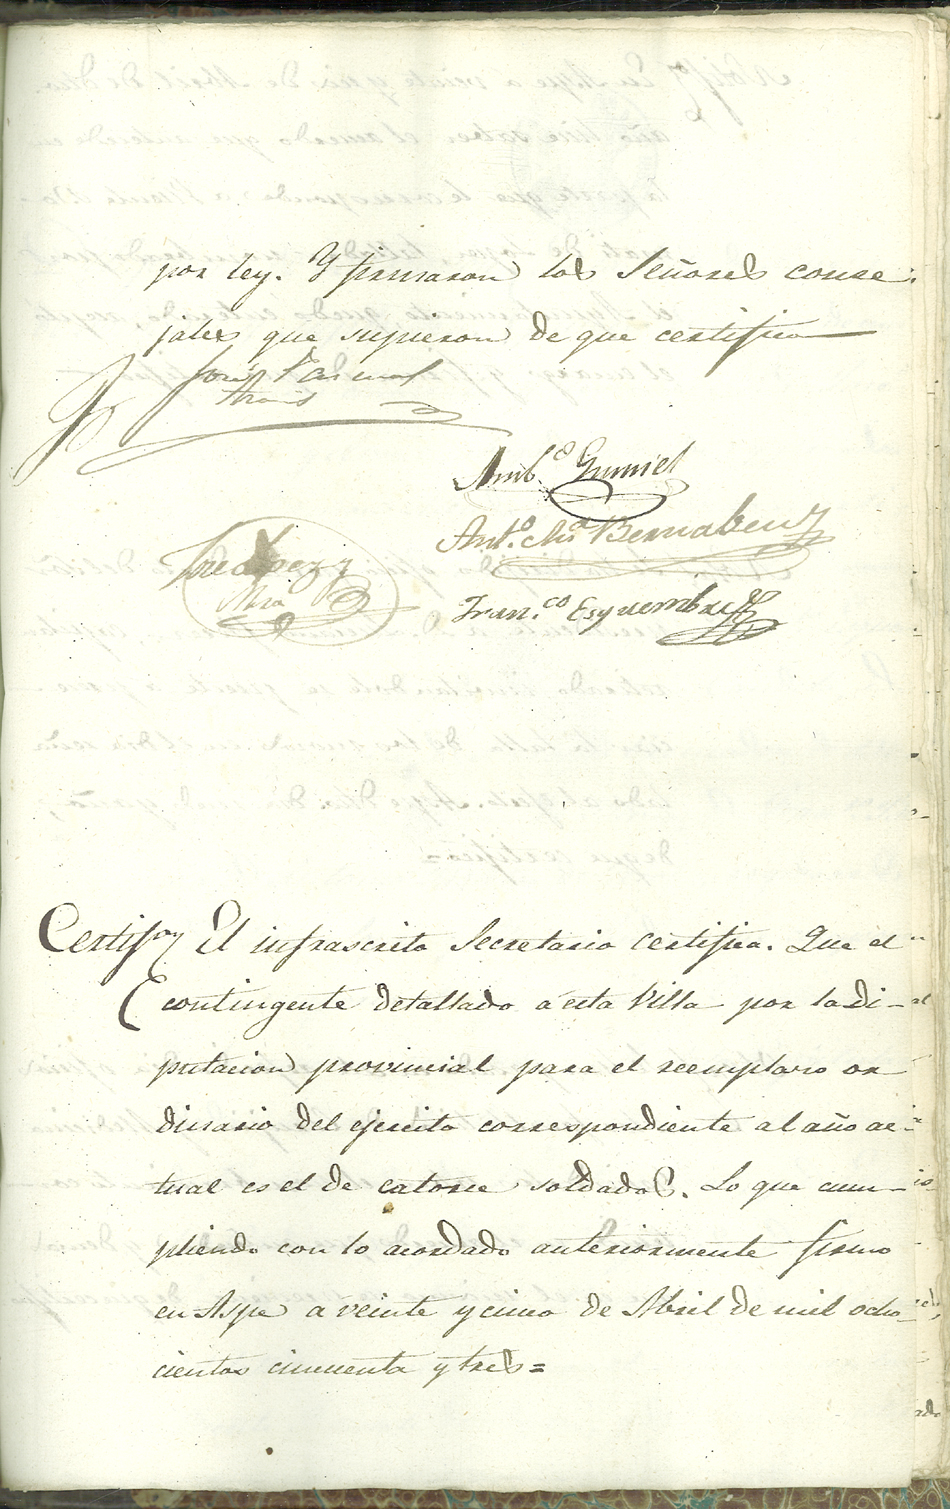 por ley. Y firmaron los Señores conse
jales que supieron de que certifico
José Pascual
Amb.º Gumiel
Ant.º M.ª Bernabeu
José Lopez y
Mira
Fran.co Esquembre
Certif.on El infrascrito Secretario certifica. Que el
contingente detallado a esta Villa por la di-
putacion provincial para el reemplazo or
dinario del ejercito correspondiente al año ac-
tual es el de catorce soldados. Lo que cum-
pliendo con lo acordado anteriormente firmo
en Aspe a veinte y cinco de Abril de mil ocho-
cientos cincuenta y tres=